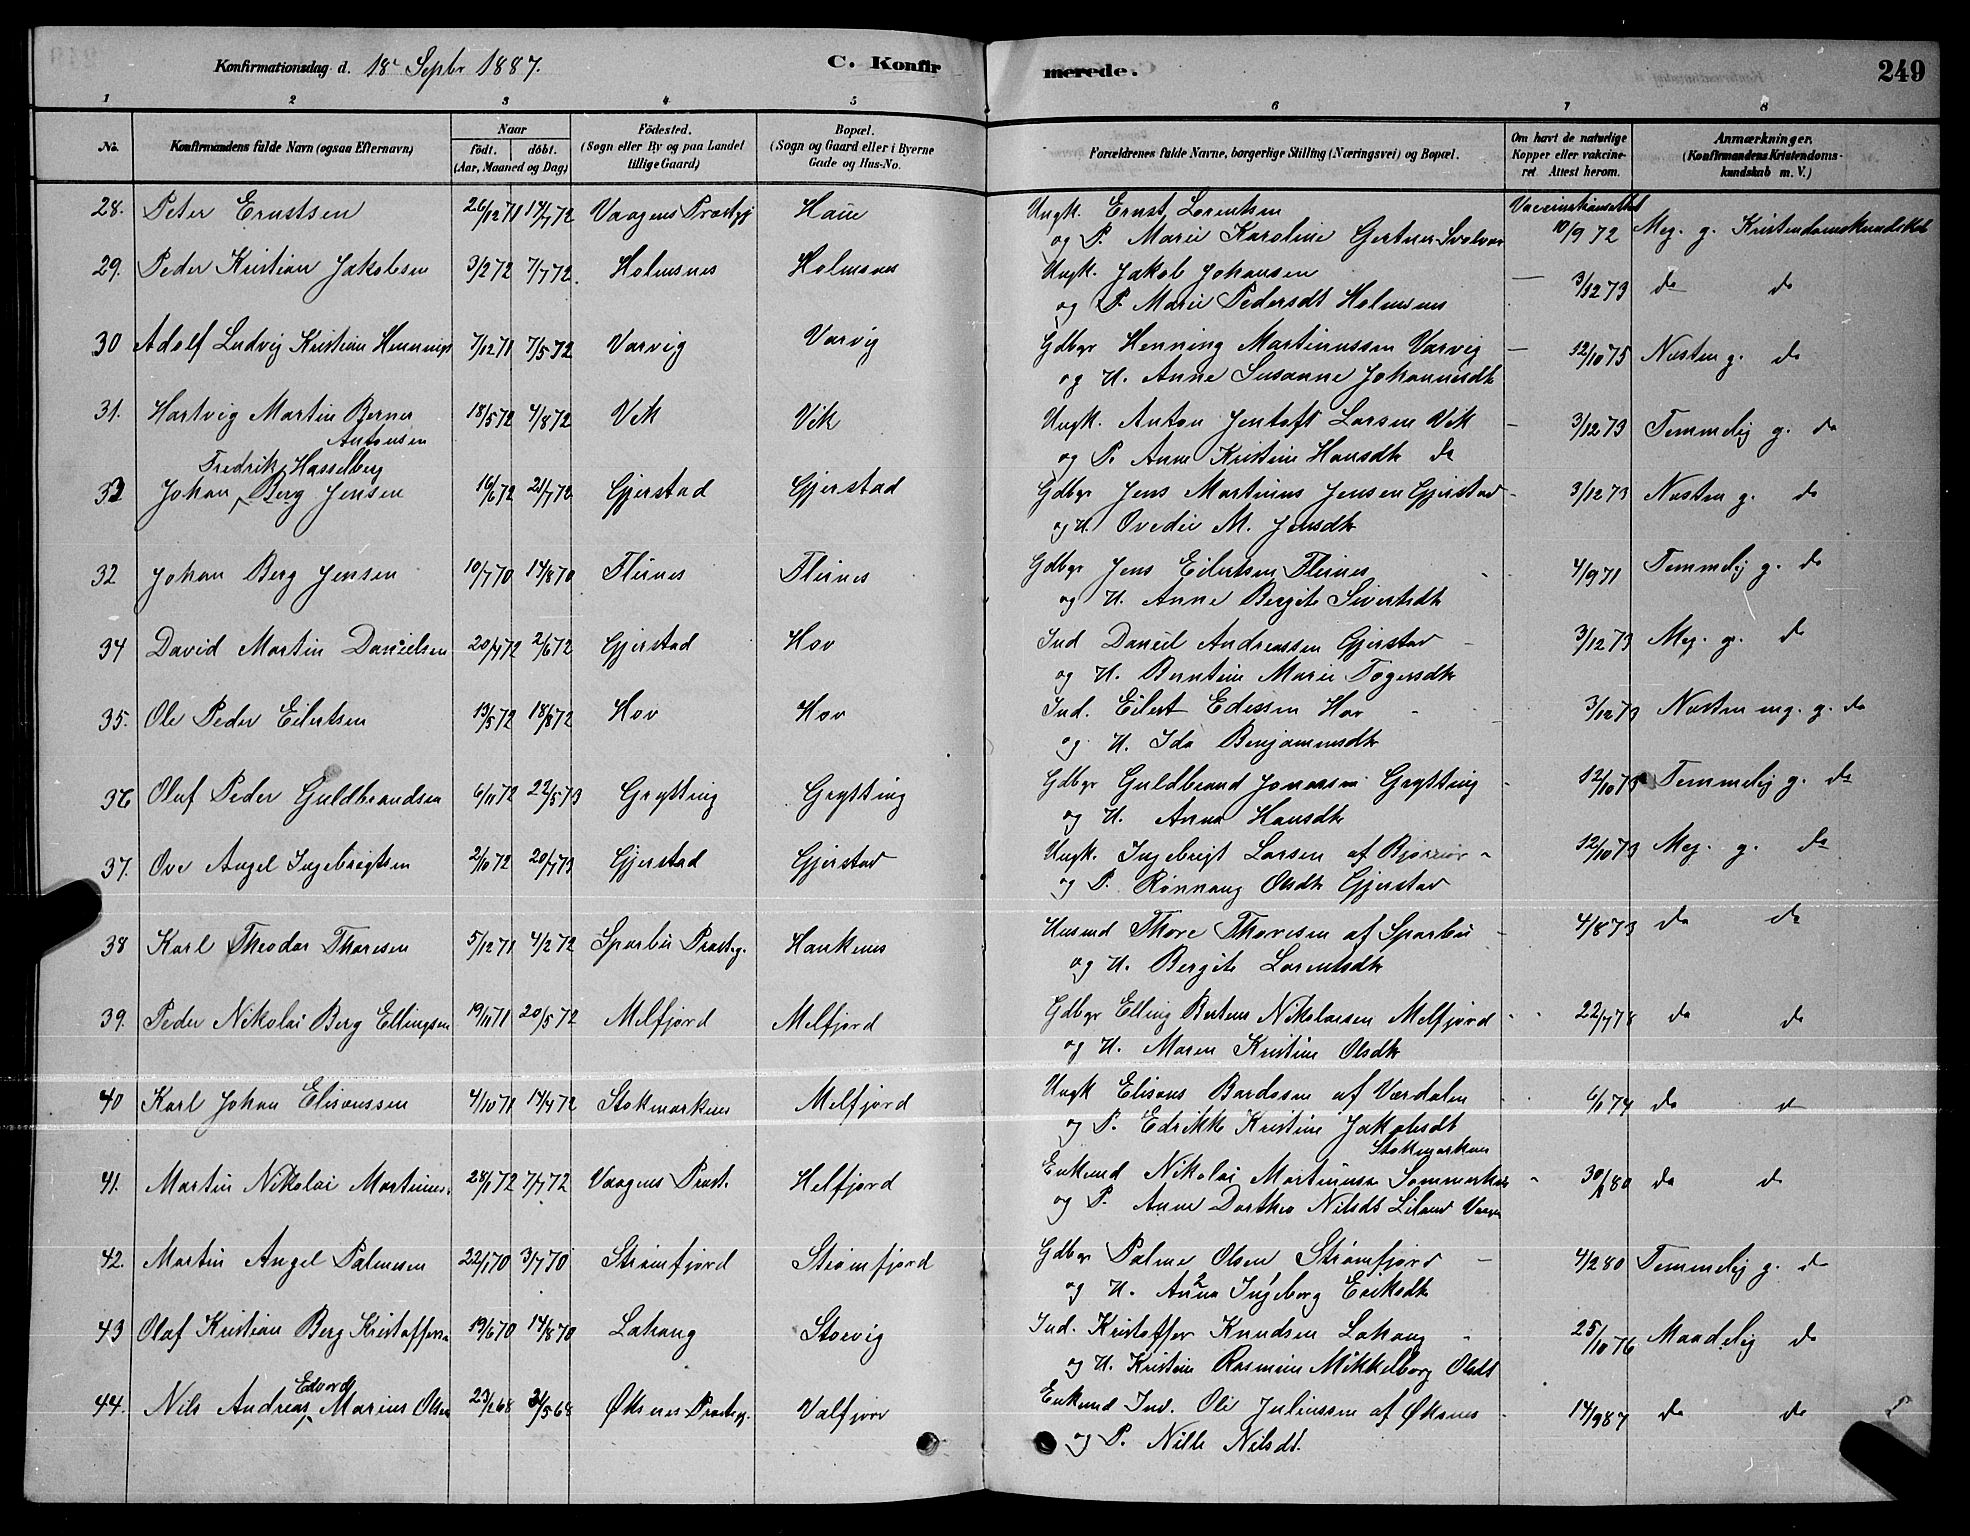 Konfirmationsdag d. 18 Septbr 1887.
C. Konfirmerede.
249
1 2 3 4 5 6 7 8
No.
Konfirmandens fulde Navn (ogsaa Efternavn)
Naar
födt. döbt.
(Aar, Maaned og Dag)
Födested.
(Sogn eller By og paa Landet
tillige Gaard)
Bopæl.
(Sogn og Gaard eller i Byerne
Gade og Hus-No.
Forældrenes fulde Navne, borgerlige Stilling (Næringsvei) og Bopæl.
Om havt de naturlige
Kopper eller vakcine-
ret. Attest herom.
Anmærkninger.
(Konfirmandens Kristendoms-
kundskab m. V.)
28. Peter Ernstsen 26/12 71 14/7 72 Vaagens Præstgj Ungk. Ernst Lorentsen
og P. Marie Karoline Gertner Svolvær 10/9 72 Meg. g. Kristendomskundskab
29. Peder Kristian Jakobsen 3/2 72 7/7 72. Holmsnes Holmsnes Ungk. Jakob Johansen — 3/12 73 do do
og P. Marie Pedersdt Holmsnes
30 Adolf Ludvig Kristian Hennings 7/12 71 7/5 72 Varvig Varvig Gdbgr Henning Martinussen Varvig — 12/10 75 Næsten g. do
og H. Anne Susanne Johannesdtr
31. Hartvig Martin Berner
Antonsen 18/5 72 4/8 72 Vik Vik Ungk. Anton Jentoft Larsen Vik - 3/12 73 Temmelig g. do
og P. Anne Kristine Hansdtr do
Fredrik Hasselberg
33 Johan Berg Jensen 16/6 72 21/7 72 Gjerstad Gjerstad Gdbgr Jens Martinus Jensen Gjerstad - 3/12 73 Næsten g. do
og H. Ovedie M. Jensdtr
32 Johan Berg Jensen 10/7 70 14/8 70 Fleines Fleines Gdbgr Jens Eilertsen Fleines - 4/9 71 Temmelig g. do
og H. Anne Bergite Sivertsdtr
34 David Martin Danielsen 20/4 72 2/6 72 Gjerstad Hov Ind Daniel Andreassen Gjerstad - 3/12 73 Meg. g. do
og H. Berntine Marie Togersdtr
35. Ole Peder Eilertsen 13/5 72 18/8 72 Hov Hov Ind. Eilert Edissen Hov - - 3/12 73 Næsten mg. g. do
og H. Ida Benjaminsdtr
36 Oluf Peder Guldbrandsen 6/11 72 22/5 73 Grytting Grytting Gdbgr Guldbrand Jonassen Grytting - 12/10 75 Temmelig g. do
og H. Anna Hansdtr
37. Ove Angel Ingebrigtsen 2/10 72 20/4 73 Gjerstad Gjerstad Ungk. Ingebrigt Larsen af - 12/10 73 Meg. g. do
og P. Rønnaug Olsdtr Gjerstad
38 Karl Theodor Thoresen 5/12 71 4/2 72 Sparbu Præsteg. Haukenes Husmd Thore Thoresen af Sparbu - 4/8 73 do do
og H. Bergite Lorentsdtr
39. Peder Nikolai Berg Ellingsen 19/11 71 20/5 72 Melfjord Melfjord Gdbgr Elling Bertens Nikolaisen Melfjord - - 22/7 78 do do
og H. Maren Kristine Olsdtr
40 Karl Johan Elisæussen 4/10 71 14/4 72 Stokmarknes Melfjord Ungk Elisæus Bardosen af Værdalen - 6/1 74 do do
og P. Edrikke Kristine Jakobsdt
Stokmarknes
41. Martin Nikolai Martinus. 28/1 72 7/7 72 Vaagens Præst. Helfjord Enkemd Nikolai Martinussen - 30/1 80 do do
og P. Anne Dorthea Nilsdt Liland
42. Martin Angel Palmesen 22/1 70 3/7 70 Strømfjord Strømfjord Gdbgr Palme Olsen Strømfjord — 4/2 80 Temmelig g. do
og H. Anna 2 Ingeborg 1 Eriksdtr
43 Olaf Kristian Berg Kristoffersen 19/6 70 14/8 70 Lahaug Storvig Ind. Kristoffer Knudsen Lahaug - 25/10 76 Maadelig do
og H. Kristine Rasmine Mikkelborg Olsdt
Edvard
44. Nils Andreas Marius Olsen 23/2 68 31/5 68 Øksnes Præsteg. Valfjord Enkemd Ind. Ole Juliussen af Øksnes - 14/9 87 do do
og P. Nille Nilsdt.